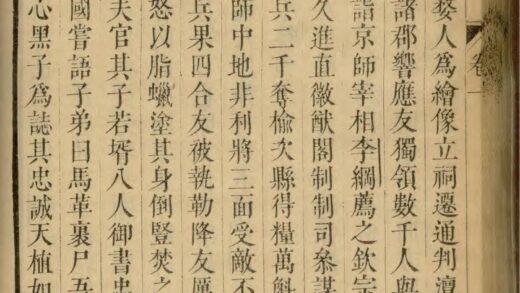 卷一
婺人爲繪像立祠遷通判澶
諸郡響應友獨領數千人與
詣京師宰相李綱薦之欽宗
久進直徽猷閣制制司叅謀
兵二千奪榆次縣得糧萬斛
師中地非利將三面受敵不
兵果四合友被執勒降友厲
怒以脂蠟塗其身倒豎焚之
夫官其子若壻八人御書忠
國嘗語子弟曰馬革裹尸吾
心黑子爲誌其忠誠天植如